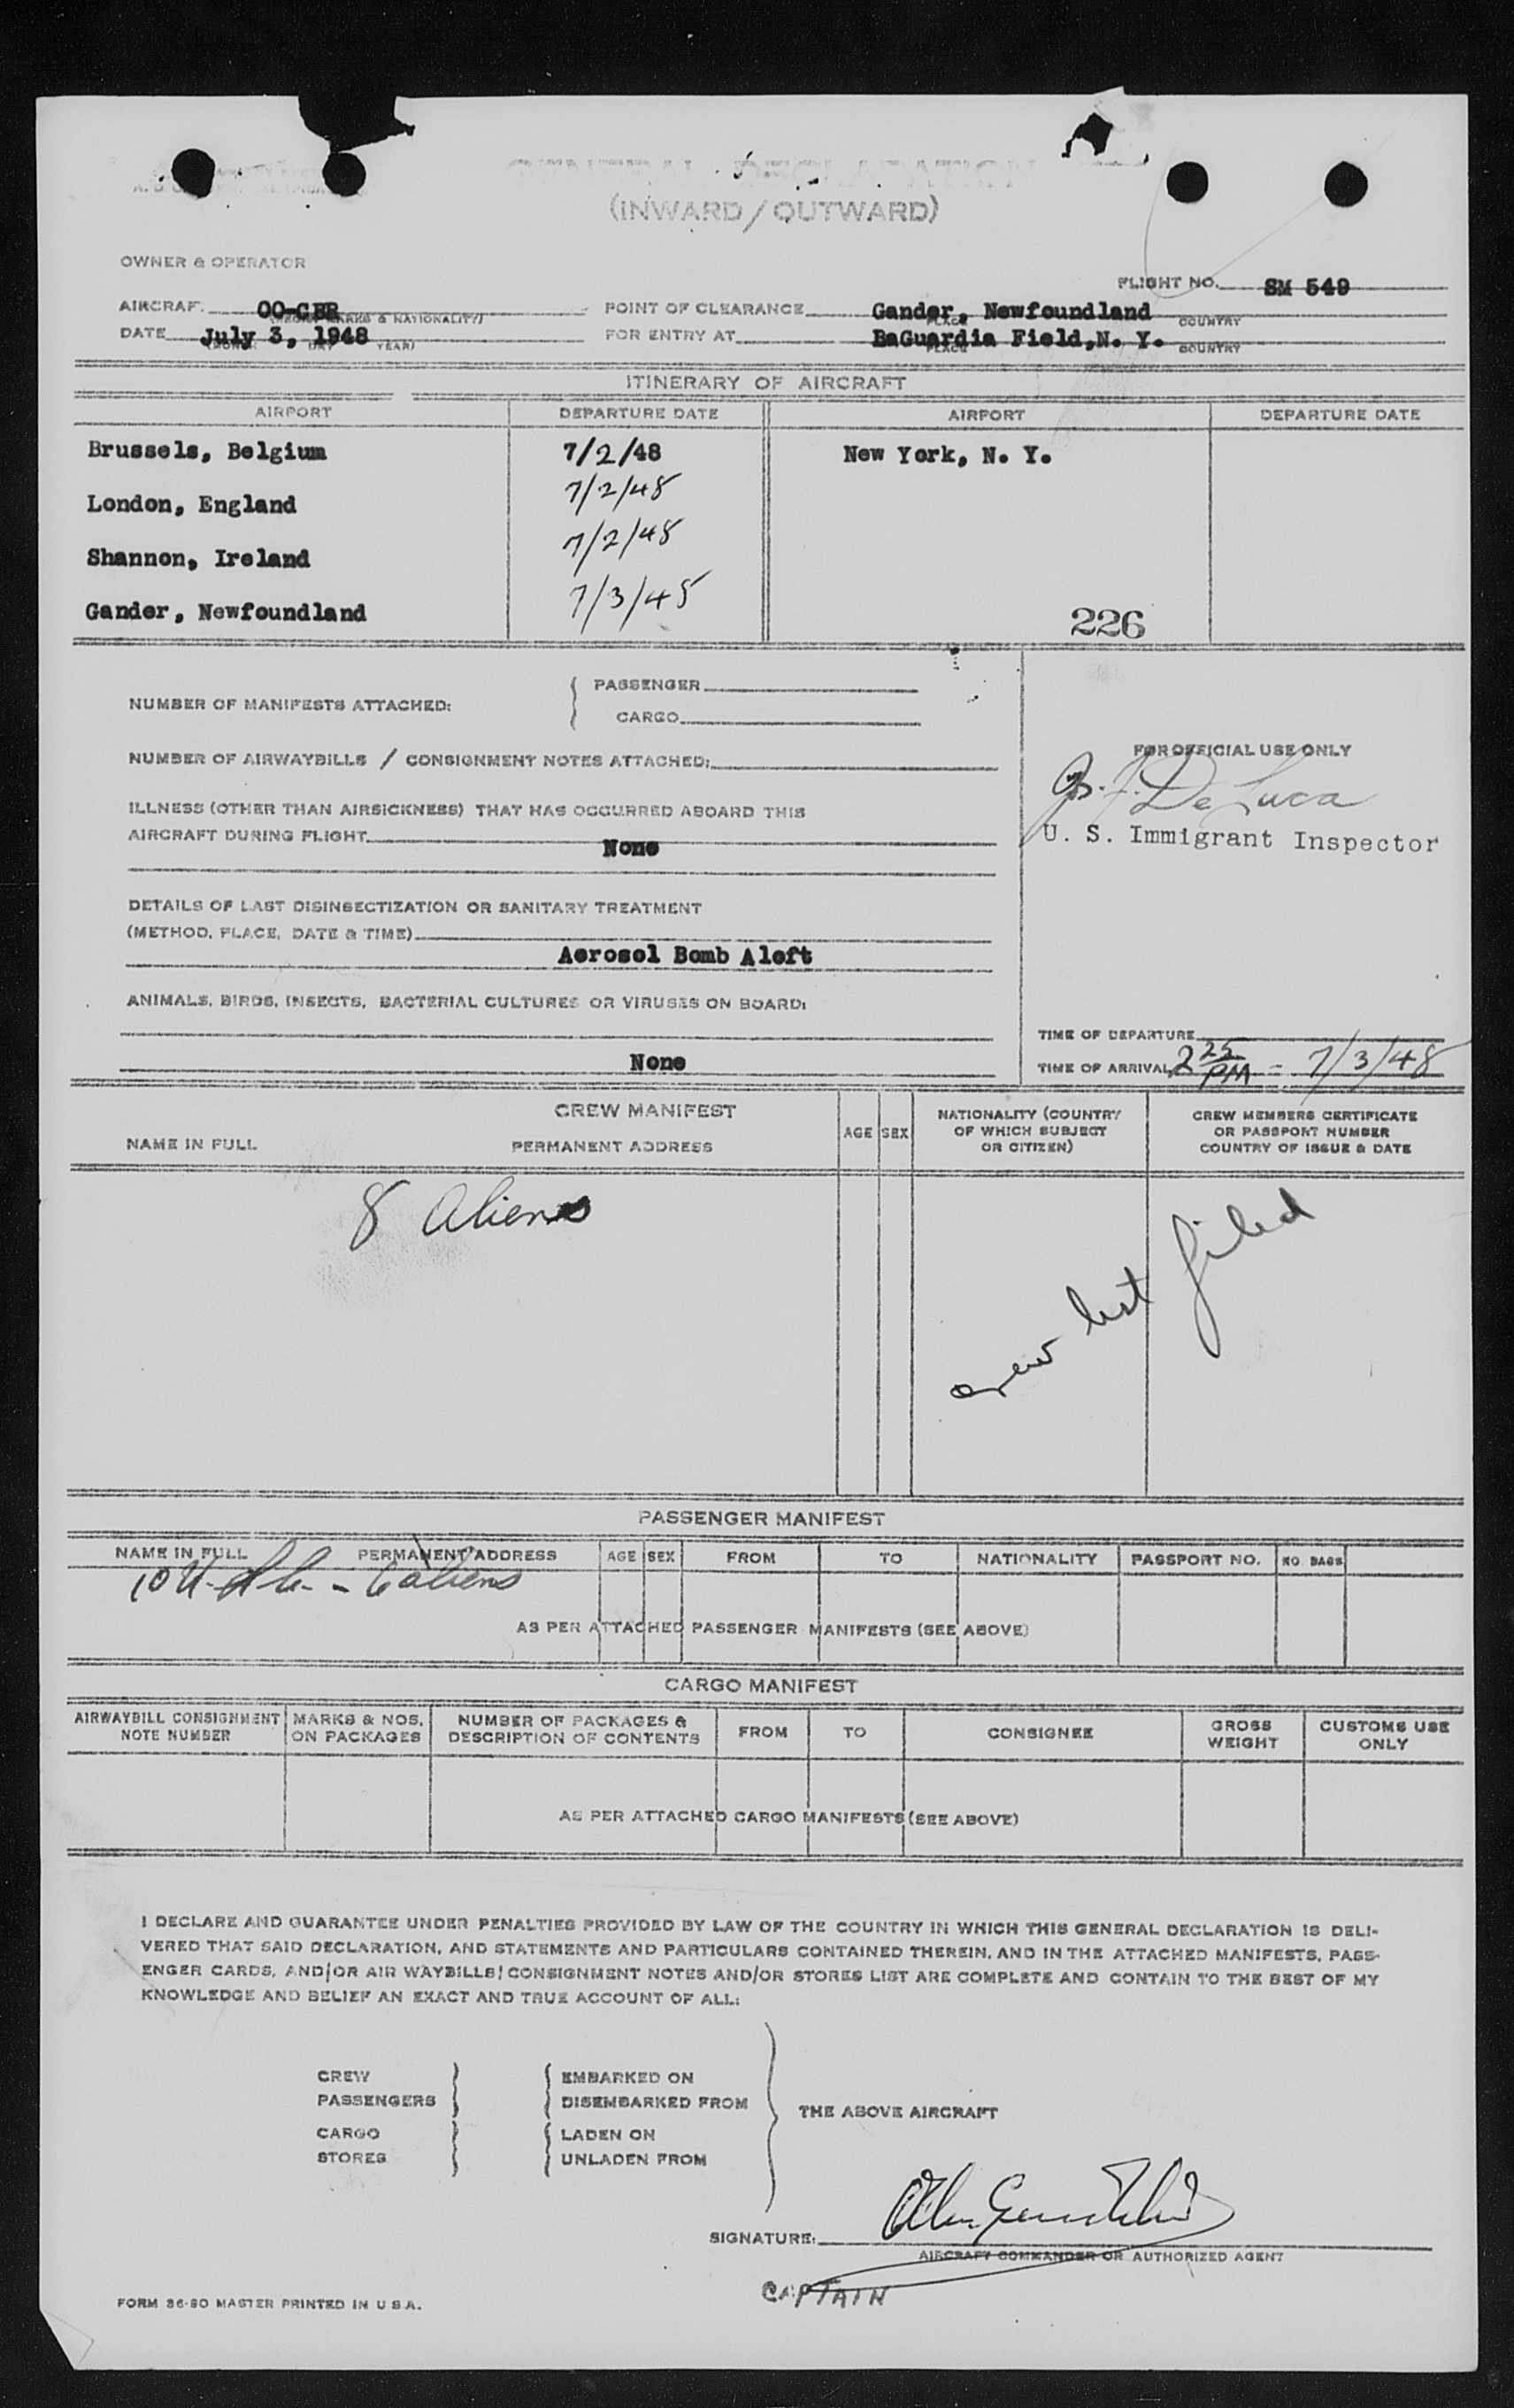 GENERAL DECLARATION
(INWARD/OUTWARD)
OWNER & OPERATOR
FLIGHT NO. SM 549
AIRCRAFT OO-CBR POINT OF CLEARANCE Gander, Newfoundland
(REGIS. MARKS & NATIONALITY) PLACE COUNTRY
DATE July 3, 1948 FOR ENTRY AT BaGuardia Field,N. Y.
(MONTH DAY YEAR) PLACE COUNTRY
ITINERARY OF AIRCRAFT
AIRPORT DEPARTURE DATE AIRPORT DEPARTURE DATE
Brussels, Belgium 7/2/48 New York, N. Y.
London, England 7/2/48
Shannon, Ireland 7/2/48
Gander, Newfoundland 7/3/48
226
NUMBER OF MANIFESTS ATTACHED: { PASSENGER
CARGO
NUMBER OF AIRWAYBILLS / CONSIGNMENT NOTES ATTACHED:
FOR OFFICIAL USE ONLY
De Luca
U. S. Immigrant Inspector
ILLNESS (OTHER THAN AIRSICKNESS) THAT HAS OCCURRED ABOARD THIS
AIRCRAFT DURING FLIGHT None
DETAILS OF LAST DISINSECTIZATION OR SANITARY TREATMENT
(METHOD, PLACE, DATE & TIME)
Aerosol Bomb Aloft
ANIMALS, BIRDS, INSECTS, BACTERIAL CULTURES OR VIRUSES ON BOARD:
None
TIME OF DEPARTURE
TIME OF ARRIVAL 2 25 PM = 7/3/48
CREW MANIFEST
NAME IN FULL PERMANENT ADDRESS AGE SEX NATIONALITY (COUNTRY OF WHICH SUBJECT OR CITIZEN) CREW MEMBERS CERTIFICATE OR PASSPORT NUMBER COUNTRY OF ISSUE & DATE
8 Aliens
crew list filed
PASSENGER MANIFEST
NAME IN FULL PERMANENT ADDRESS AGE SEX FROM TO NATIONALITY PASSPORT NO. NO. BAGS
10 U.S.C. - 6 aliens
AS PER ATTACHED PASSENGER MANIFESTS (SEE ABOVE)
CARGO MANIFEST
AIRWAYBILL CONSIGNMENT NOTE NUMBER MARKS & NOS. ON PACKAGES NUMBER OF PACKAGES & DESCRIPTION OF CONTENTS FROM TO CONSIGNEE GROSS WEIGHT CUSTOMS USE ONLY
AS PER ATTACHED CARGO MANIFESTS (SEE ABOVE)
I DECLARE AND GUARANTEE UNDER PENALTIES PROVIDED BY LAW OF THE COUNTRY IN WHICH THIS GENERAL DECLARATION IS DELI-
VERED THAT SAID DECLARATION, AND STATEMENTS AND PARTICULARS CONTAINED THEREIN, AND IN THE ATTACHED MANIFESTS, PASS-
ENGER CARDS, AND/OR AIR WAYBILLS/CONSIGNMENT NOTES AND/OR STORES LIST ARE COMPLETE AND CONTAIN TO THE BEST OF MY
KNOWLEDGE AND BELIEF AN EXACT AND TRUE ACCOUNT OF ALL:
CREW EMBARKED ON
PASSENGERS DISEMBARKED FROM
THE ABOVE AIRCRAFT
CARGO LADEN ON
STORES UNLADEN FROM
SIGNATURE:
AIRCRAFT COMMANDER OR AUTHORIZED AGENT
CAPTAIN
FORM 36-80 MASTER PRINTED IN U S A.